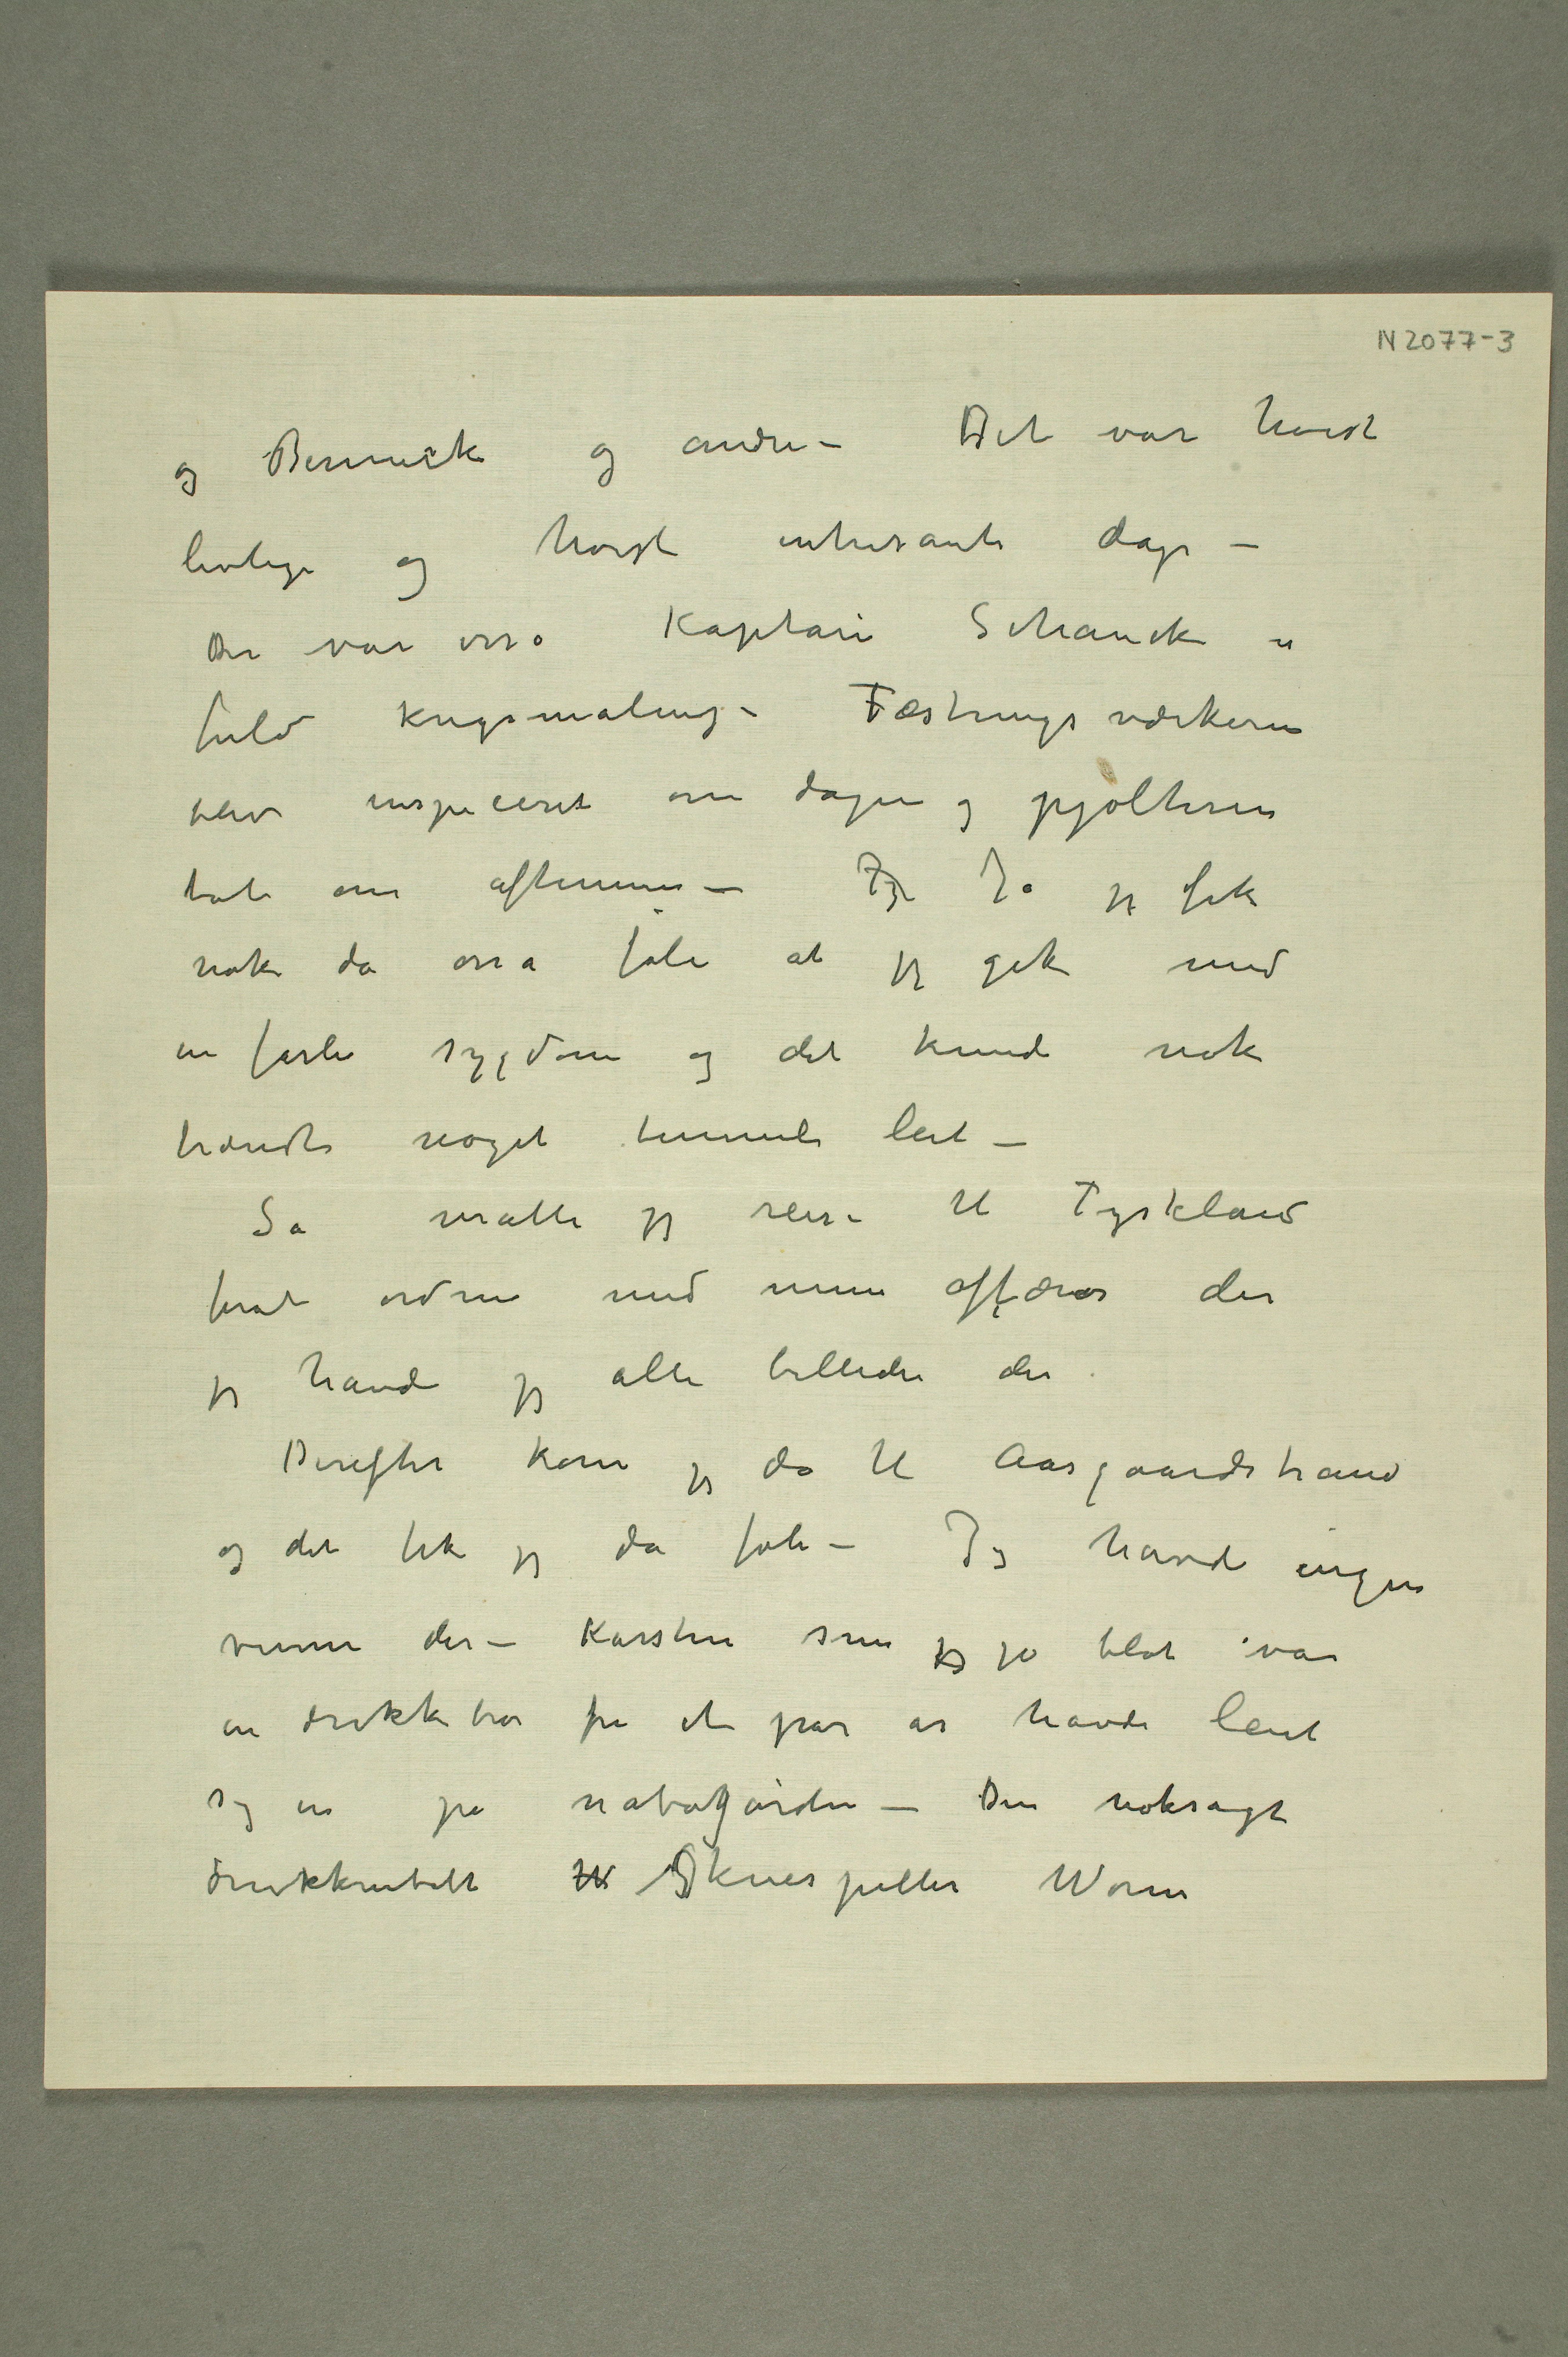 N 2077-3
og Bennecke og andre – Det var høist
livlige og høist intresante dage –
Der var osså Kaptain Schanck i
fuld krigsmaling – Fæstningsværkerne
blev inspiceret om dagen og pjolterne
tat om aftenerne – Jeg Ja jeg fik
nok da osså føle at jeg gik med
en farli sygdom og det kunde nok
hændte noget temmeli leit –
Så måtte jeg reise til Tyskland
forat ordne med mine affærer der
jeg havde jeg alle billeder der
Derefter kom jeg da til Aasgaardstrand
og det fik jeg da føle – Jeg havde ingen
venner der – Karsten som jeg jo blot var
en drikkebror fra et par år havde leiet
sig in på nabogården – Den noksagt
drukkenbolt W Skuespiller Worm